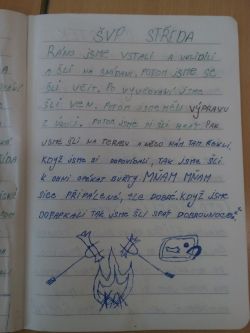 ŠVP STŘEDA
RÁNO JSME VSTALI A UKLIDILI
A ŠLI NA SNÍDANI. POTOM JSME SE
ŠLI UČIT. PO VYUČOVÁNÍ JSME
ŠLI VEN. POTOM JSME MĚLI VÝPRAVU
POTOM JSME SI ŠLI HRÁT. PAK
JSME ŠLI NA TERASU A NĚCO NÁM TAM ŘEKLI.
KDYŽ JSME SI ODPOČINULI, TAK JSME ŠLI
K OHNI OPÉKAT BUŘTY. MŇAM MŇAM
SICE PŘIPÁLENÉ, ALE DOBRÉ. KDYŽ JSME
DOPAPKALI TAK JSME ŠLI SPÁT DOBROUNOC